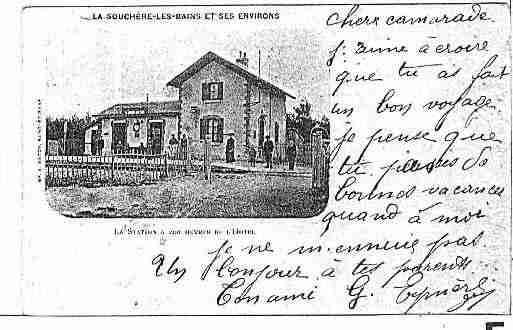 LA SOUCHÈRE-LES-BAINS ET SES ENVIRONS
chere camarade.
j'aime à croire
que tu as fait
un bon voyage
je pense que
tu passes de
bonnes vacances
quand à moi
je ne m'ennuie pas
Un bonjour à tes parents
Ton ami G.
LA STATION À 200 MÈTRES DE L'HÔTEL